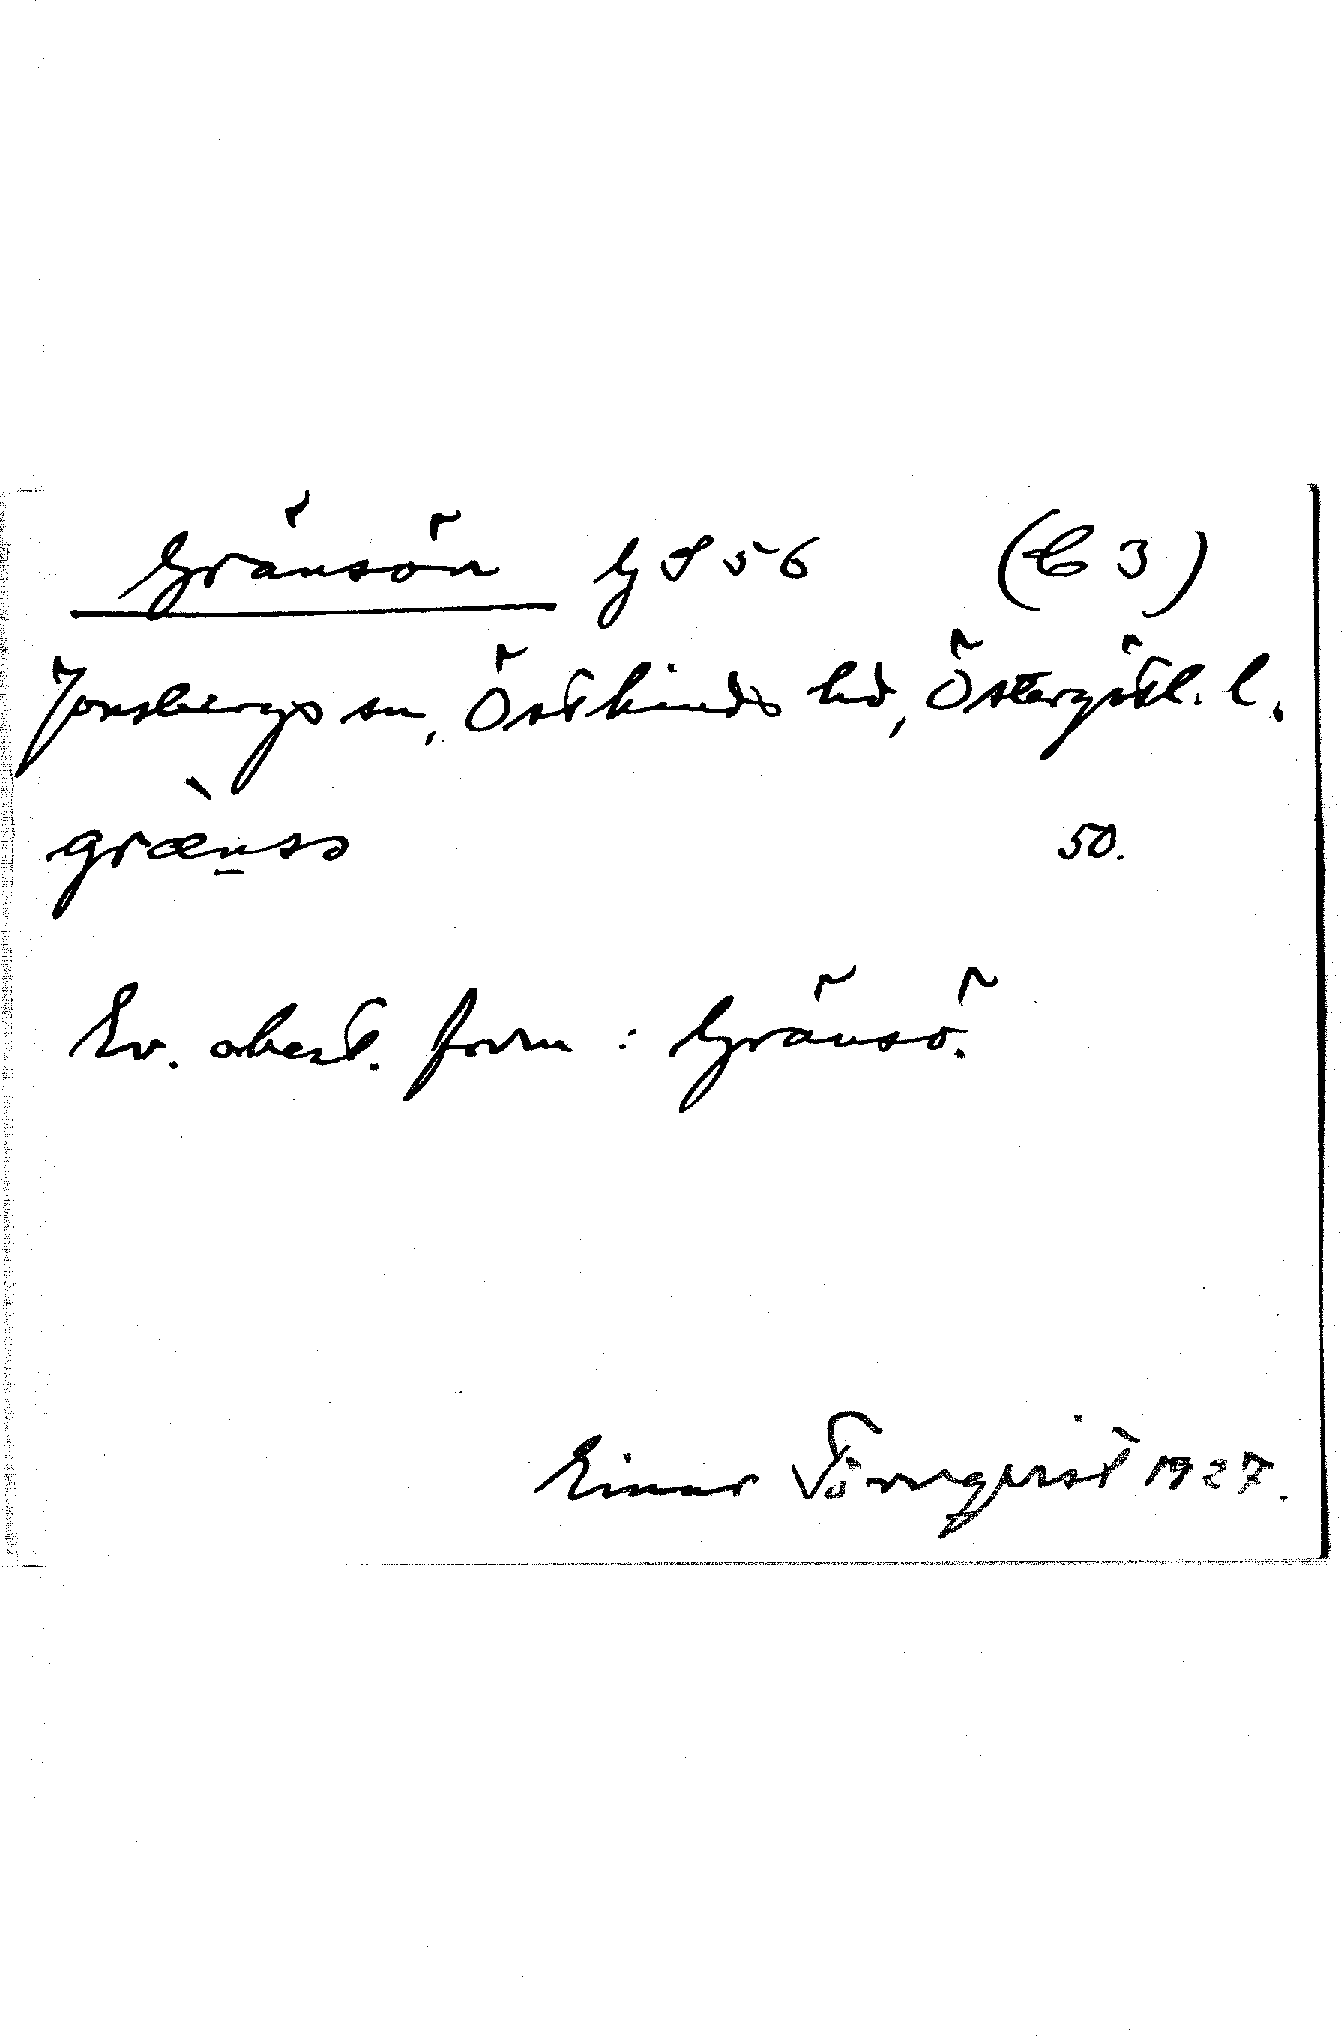 Gränsön GS 56 (C 3)
Jonsbergs sn, Östkinds hd, Östergötl. l.
grænsɔ 50.
Ev. obest. form: Gränsö.
Einar Törnqvist 1927.